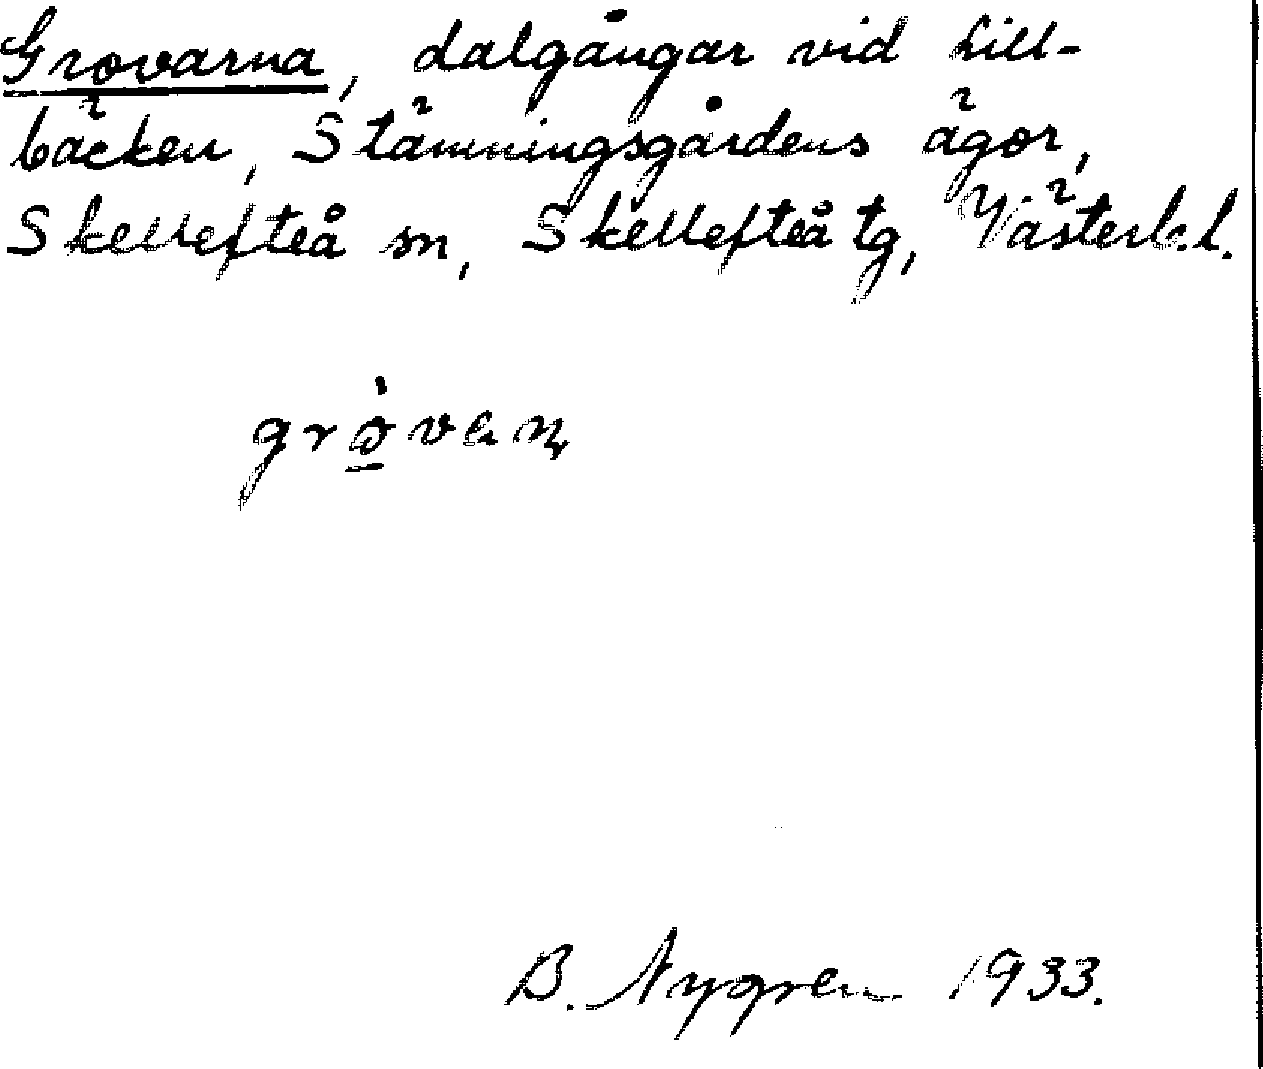 Grovarna, dalgångar vid Lill-
bäcken, Stämningsgårdens ägor,
Skellefteå sn, Skellefteå tg, Västerb.l.
B. Nygren 1933.